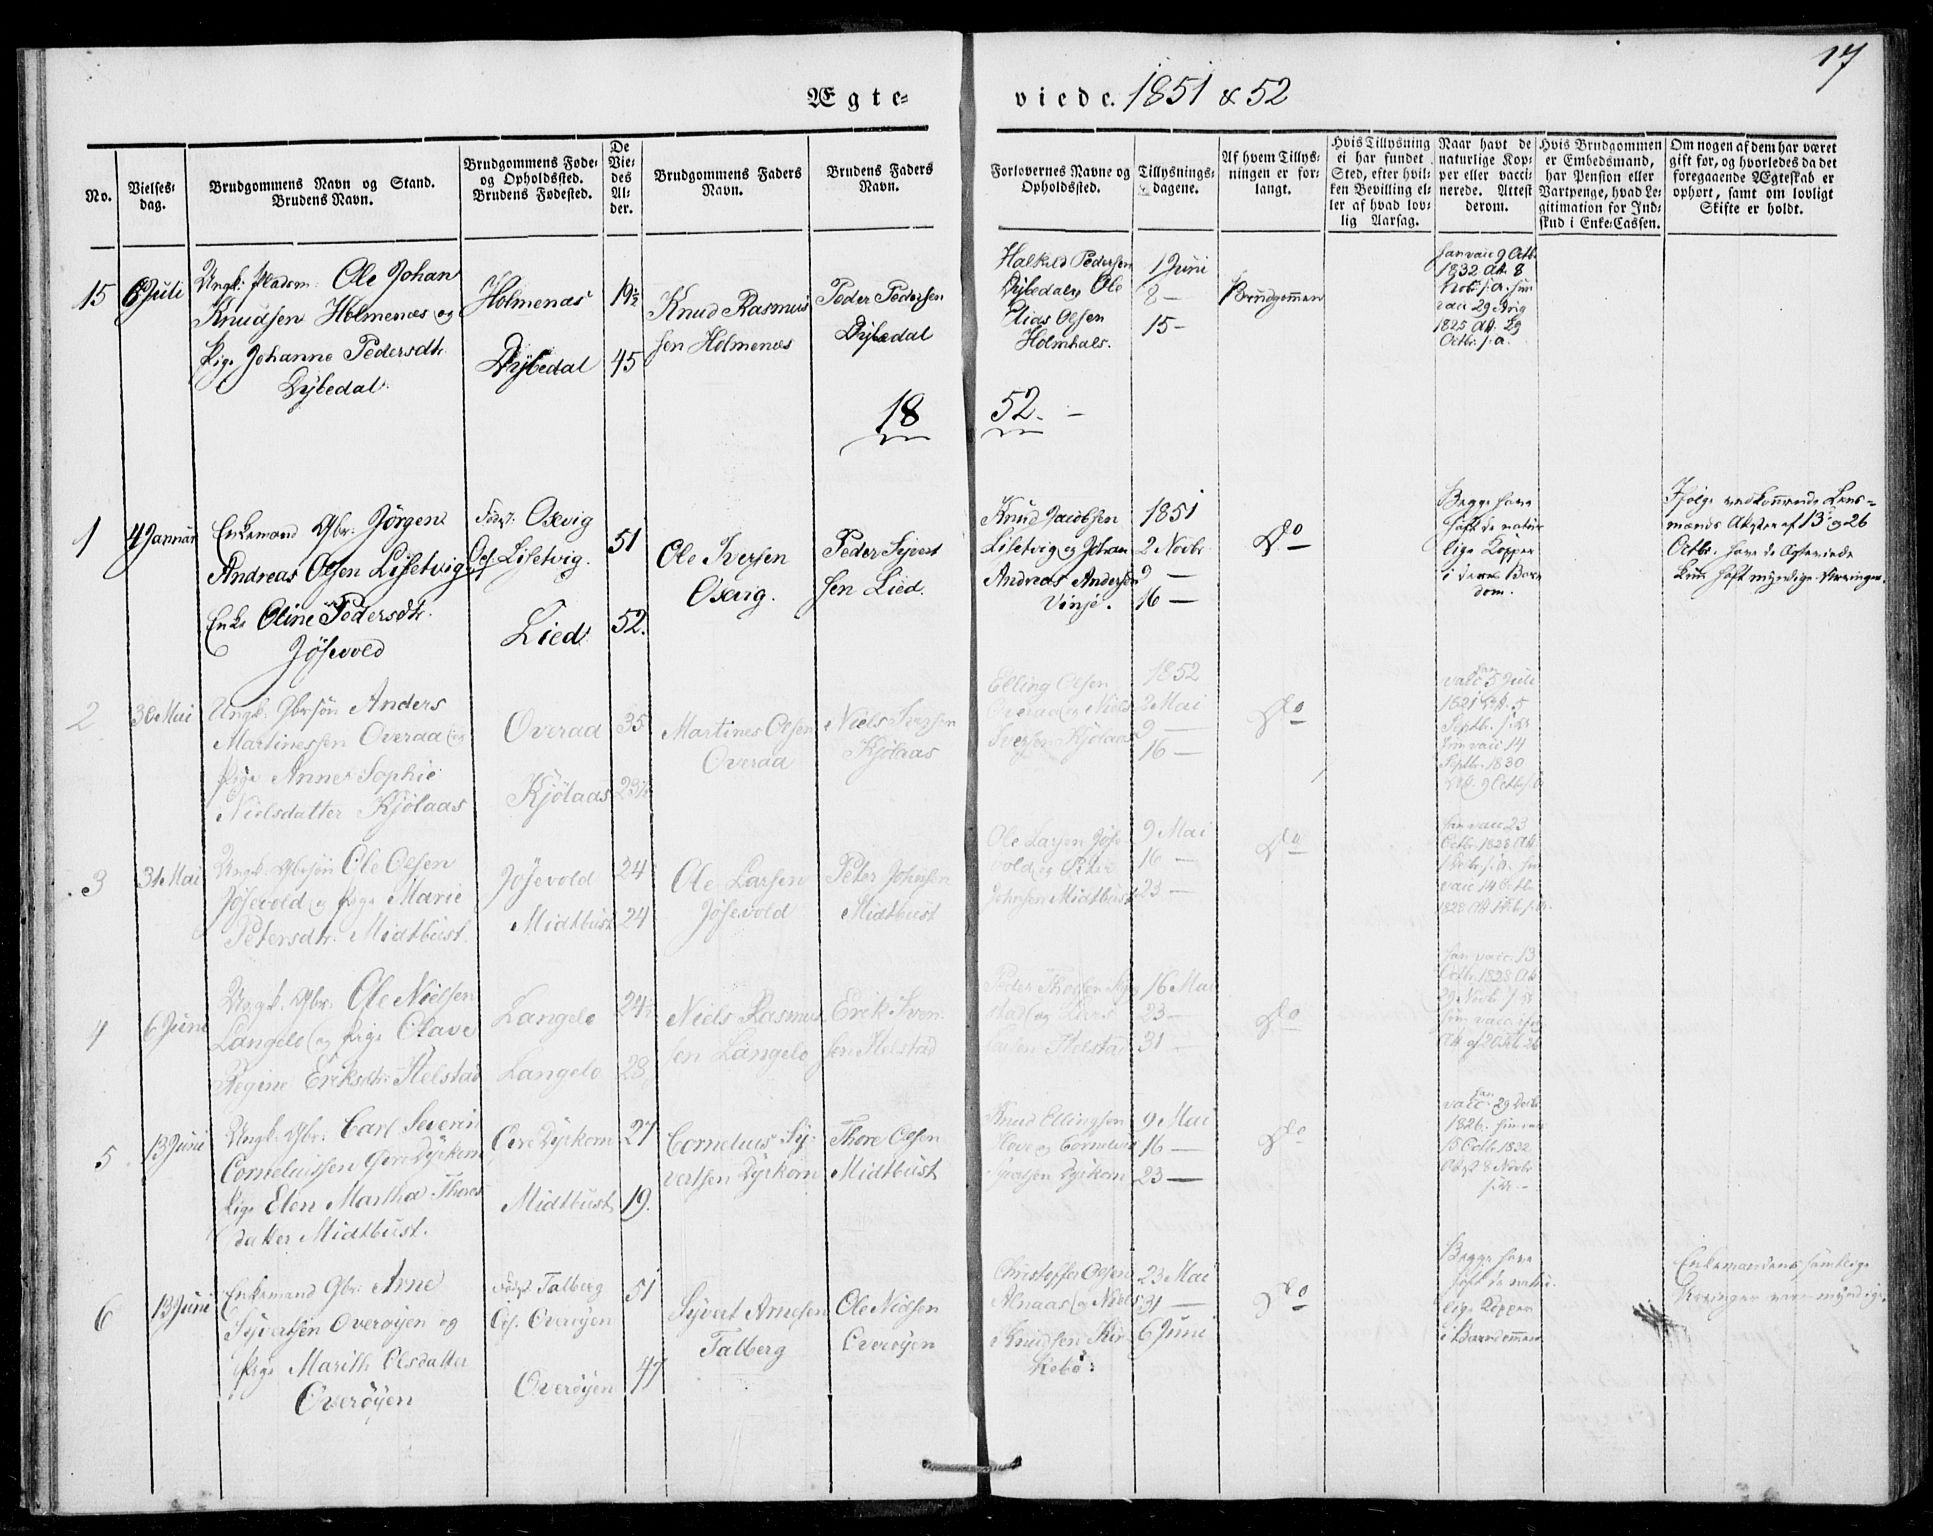 17
Ægte-
viede. 1851 & 52
No.
Vielses-
dag.
Brudgommens Navn og Stand.
Brudens Navn.
Brudgommens Føde-
og Opholdssted.
Brudens Fødested.
De
Vie-
des
Al-
der.
Brudgommens Faders
Navn.
Brudens Faders
Navn.
Forlovernes Navne og
Opholdssted.
Tillysnings-
dagene.
Af hvem Tillys-
ningen er for-
langt.
Hvis Tillysning
ei har fundet
Sted, efter hvil-
ken Bevilling el-
ler af hvad lov-
lig Aarsag.
Naar havt de
naturlige Kop-
per eller vacci-
nerede. Attest
derom.
Hvis Brudgommen
er Embedsmand,
har Pension eller
Vartpenge, hvad Le-
gitimation for Ind-
skud i Enke-Cassen.
Om nogen af dem har været
gift før, og hvorledes da det
foregaaende Ægteskab er
ophørt, samt om lovligt
Skifte er holdt.
15
6 Juli
Ungk. Pladsm. Ole Johan
Knudsen Holmenæs og
Pige Johanne Pedersdtr.
Dybedal.
Holmenæs
Dybedal
19½
45
Knud Rasmus
sen Holmenæs
Peder Pedersen
Dybedal
Halkild Pedersen
Dybedal, Ole
Elias Olsen
Holmhals.
1 Juni
8 —
15 —
Brudgommen
han vacc 9 Octb.
1832 Att. 8
Novb. s. a. hun
vacc 29 Aug
1825 Att. 29
Octbr. s. a.
18 52. —
1
4 Januar
Enkemand Gbr. Jörgen
Andreas Olsen Lisetvig og
Enke Oline Pedersdtr.
Jösevold
Födst. Oxevig
Oph. Lisetvig.
Lied
51
52.
Ole Iversen
Oxevig.
Peder Syvert
sen Lied.
Knud Jacobsen
Lisetvig og Johan
Andreas Andersen
Vinje.
1851
2 Novbr.
9 —
16 —
Do
Begge have
haft de natur
lige Kopper
i deres Barn
dom.
Ifølge vedkommende Lens-
mænds Attester af 13 og 26
Octbr. have de Ægteviede
kun haft myndige Arvinger.
2
30 Mai
Ungk. Gbrsön Anders
Martinessen Overaa og
Pige Anne Sophie
Nielsdatter Kjölaas
Overaa
Kjölaas
35
23½
Martines Olsen
Overaa
Niels Iversen
Kjölaas
Elling Olsen
Overaa og Niels
Iversen Kjölaas
1852
2 Mai
9 —
16 —
Do
han
vacc 5 Juli
1821 Att. 5
Septbr. s. A.
hun vacc 14
Septbr. 1830
Att. 9 Octb. s. A.
3
31 Mai
Ungk. Gbrsön Ole Olsen
Jösevold og Pige Marie
Petersdtr. Midtbust.
Jösevold
Midtbust
24
24
Ole Larsen
Jösevold
Peter Johnsen
Midtbust
Ole Larsen Jöse-
vold og Peter
Johnsen Midtbust
9 Mai
16 —
23 —
Do
han vacc 23
Octbr. 1828 Att.
s. A. hun
vacc 14 Octb.
1828 Att.
4
6 Juni
Ungk. Gbr. Ole Nielsen
Langelo og Pige Olave
Regine Eriksdtr. Helstad
Langelo
Langelo
24½
28
Niels Rasmus
sen Langelo
Erik Iven-
sen Helstad
Peder
stad og Lars
Helstad
16 Mai
23 —
31 —
Do
han vacc. 13
Octbr. 1828 Att.
29 Novb. s. A.
hun vacc.
5
13 Juni
Ungk. Gbr. Carl Severin
Corneliussen Övre Dyrkorn
Pige Elen Martha Thores
datter Midtbust.
Övre Dyrkorn
Midtbust
27
19.
Cornelius Sy-
vertsen Dyrkorn
Thore Olsen
Midtbust
Knud Ellingsen
Hove og Cornelius
Syvertsen Dyrkorn
9 Mai
16 —
23 —
Do
han
vacc. 29 Octb.
1826. hun vacc
15 Octb. 1832
Attest 8 Novbr
s. A. —
6
13 Juni
Enkemand Gbr. Arne
Syvertsen Overöyen og
Pige Marith Olsdatter
Overöyen
Födst. Talberg
Oph. Overöyen
Overöyen
51
47
Syvert Arnesen
Talberg
Ole Nielsen
Overöyen
Christoffer Olsen
Alnaas og Niels
Knudsen Kir-
kebö.
23 Mai
31 —
6 Juni
Do
Begge have
haft de natur-
lige Kopper
i Barndommen
Enkemandens samtlige
Arvinger vare myndige.